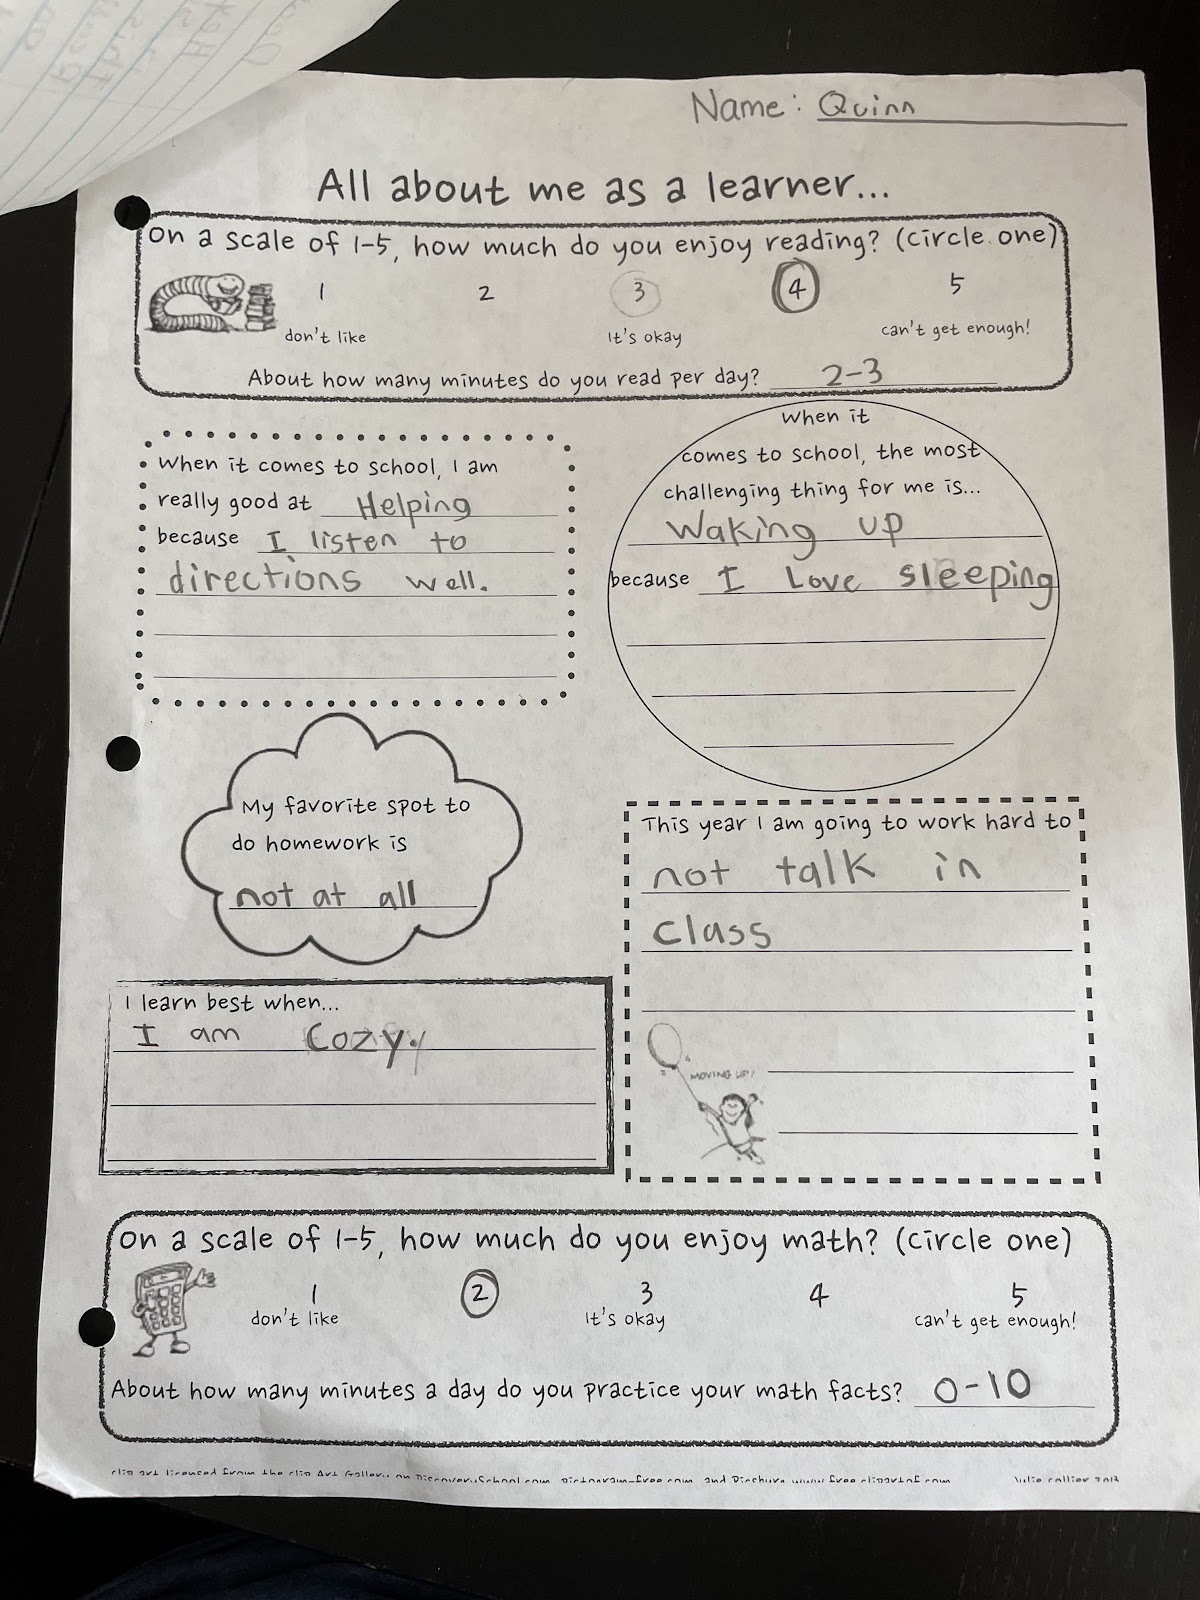 Name: Quinn
All about me as a learner...
On a scale of 1-5, how much do you enjoy reading? (circle one)
1 2 3 4 5
don't like It's okay can't get enough!
About how many minutes do you read per day? 2-3
When it comes to school, I am
really good at Helping
because I listen to
directions well.
When it
comes to school, the most
challenging thing for me is...
Waking up
because I Love sleeping
My favorite spot to
do homework is
not at all
This year I am going to work hard to
not talk in
class
MOVING UP!
I learn best when...
I am Cozy.
On a scale of 1-5, how much do you enjoy math? (circle one)
1 2 3 4 5
don't like It's okay can't get enough!
About how many minutes a day do you practice your math facts? 0-10
clip art licensed from the Clip Art Gallery on DiscoverySchool.com